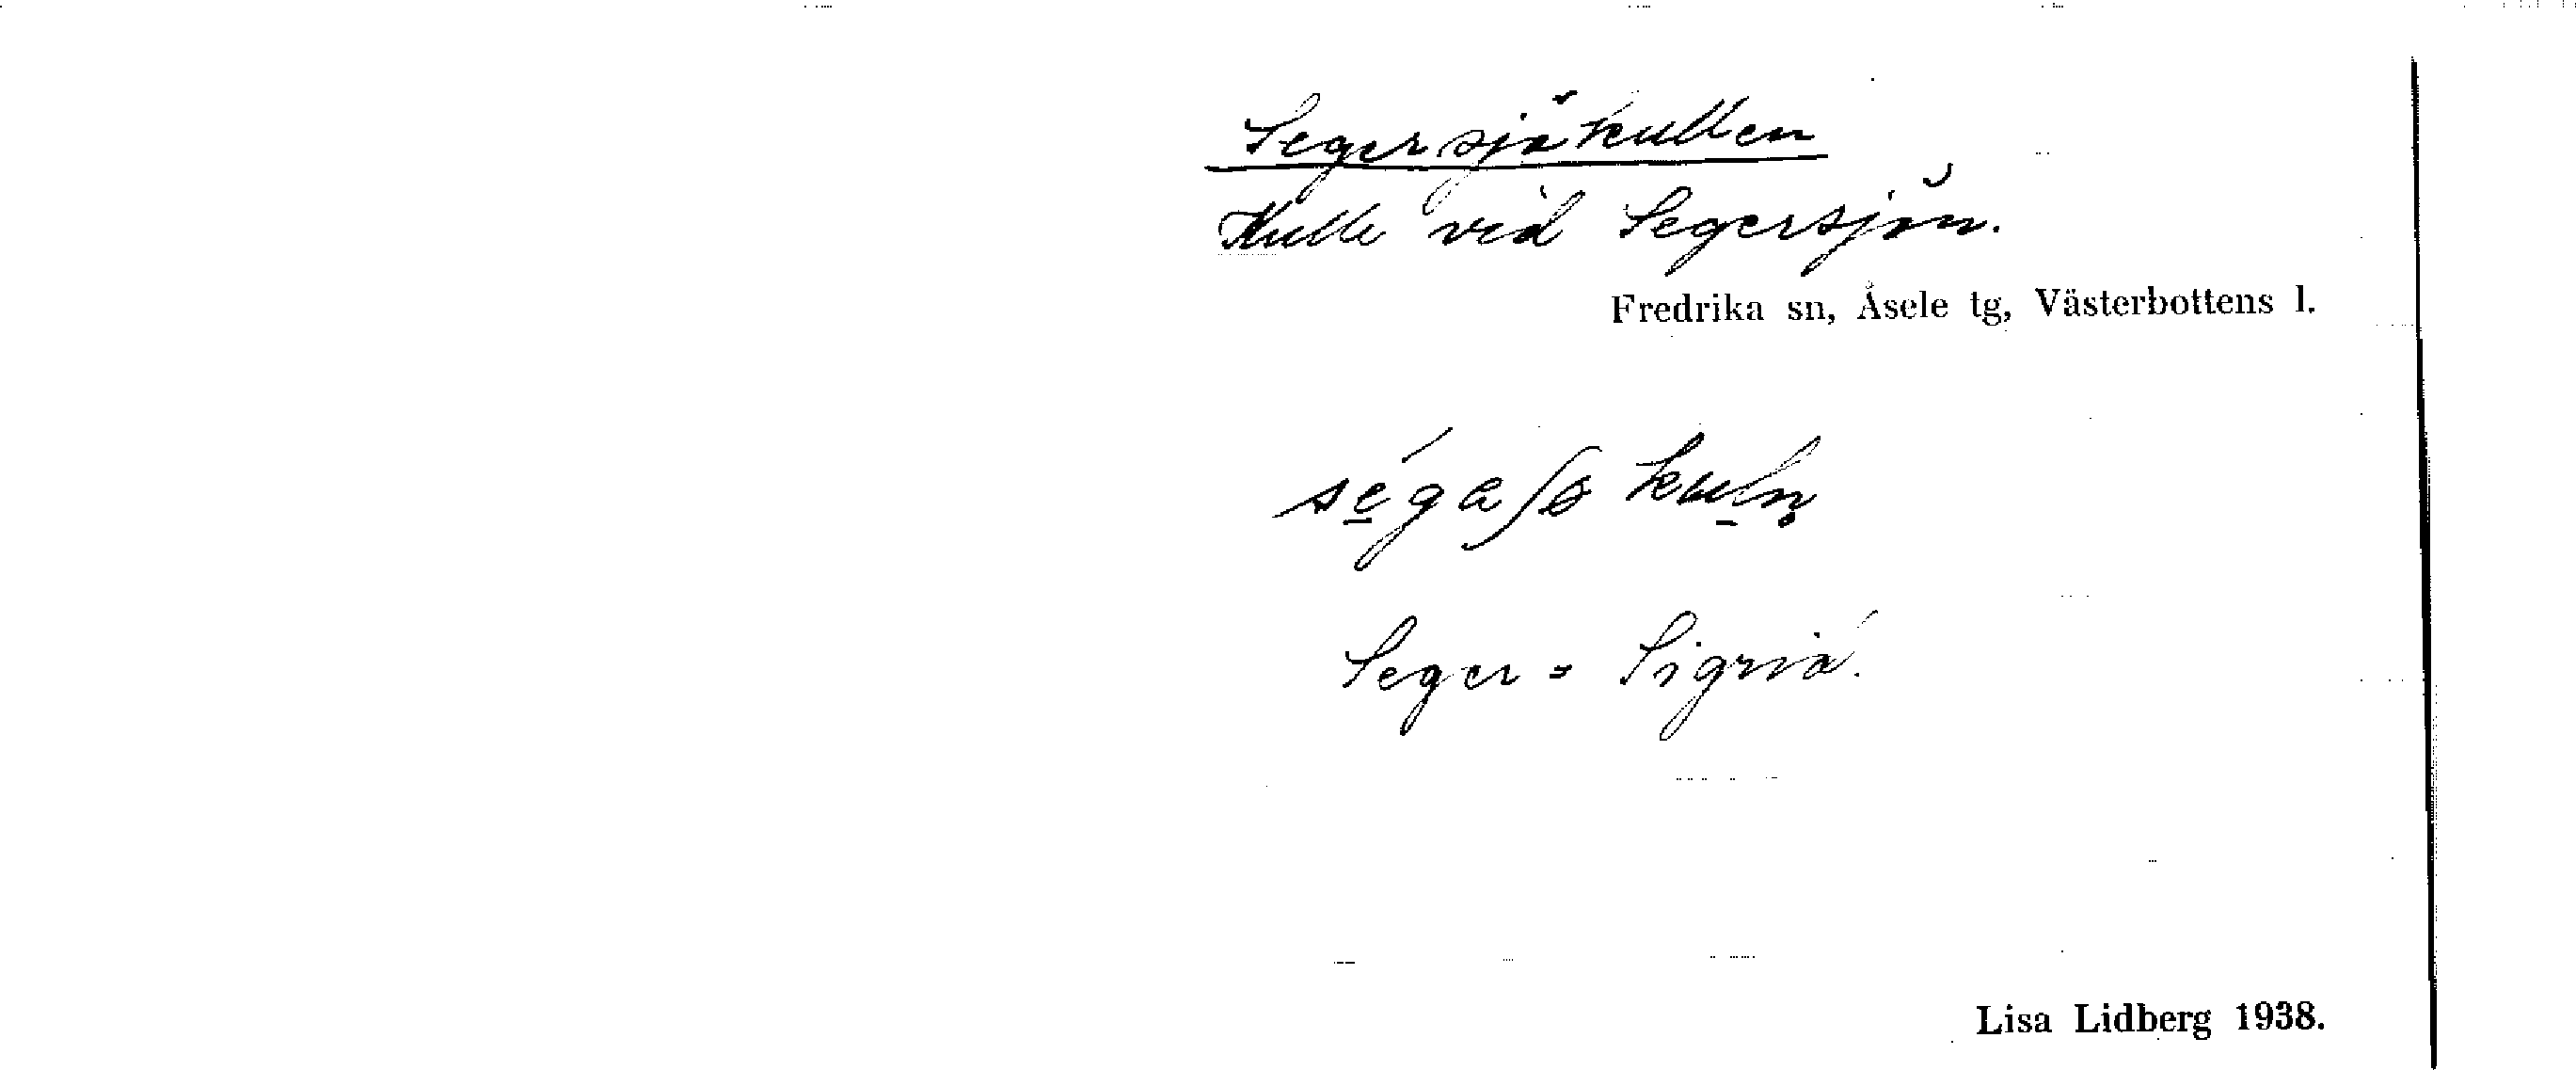 Segersjökullen
Kulle vid Segersjön.
Fredrika sn, Åsele tg, Västerbottens l.
ségaʃø kul̠n̥
Seger = Sigrid.
Lisa Lidberg 1938.